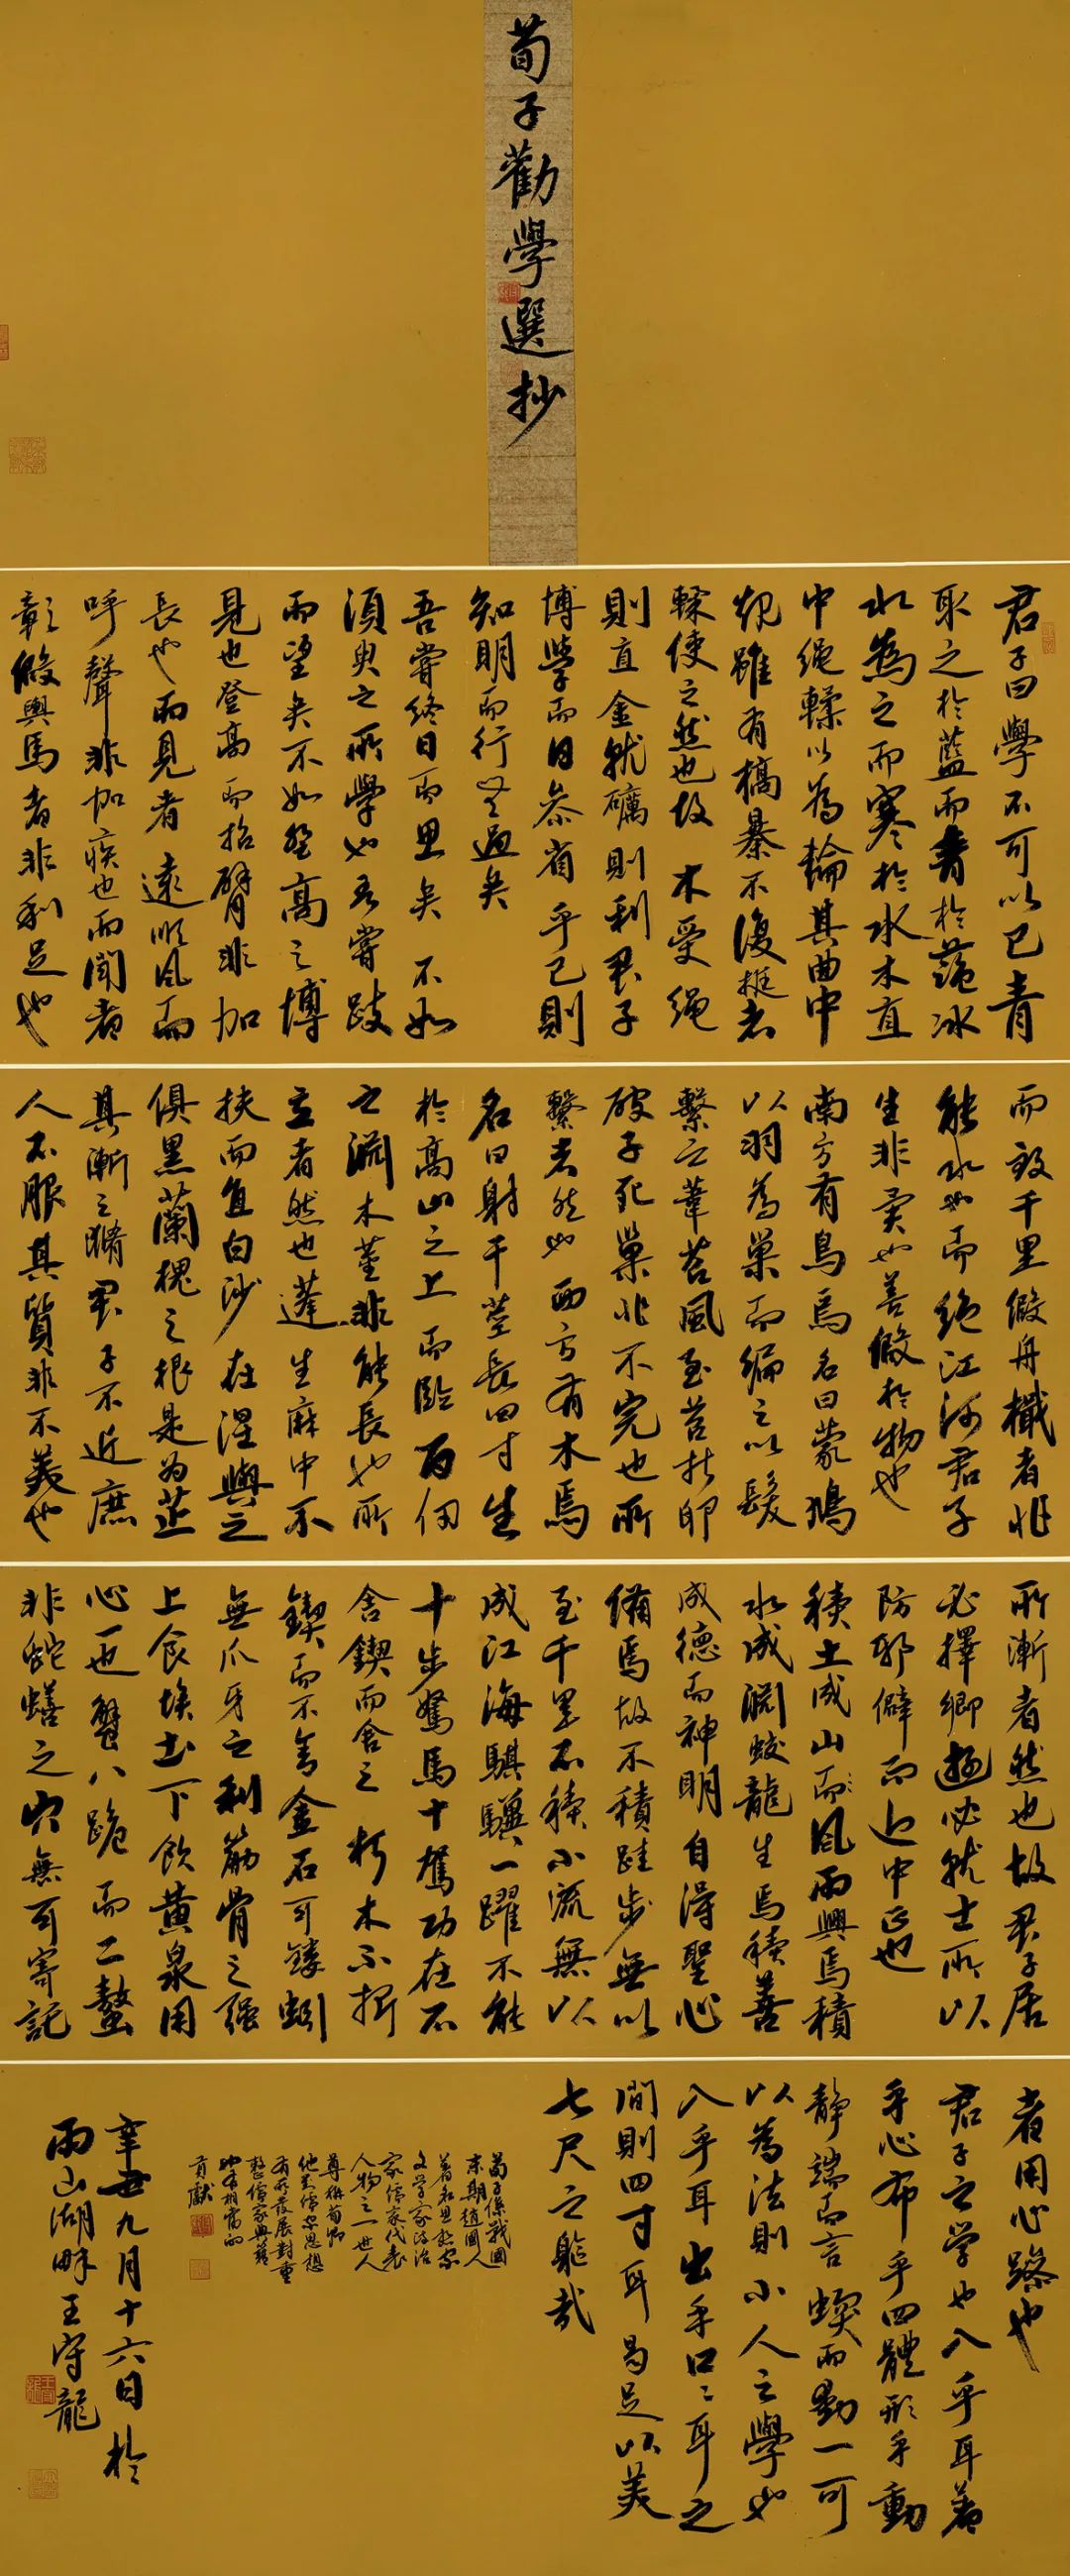 荀子勸學選抄
君子曰學不可以已青
取之於藍而青於藍冰
水為之而寒於水木直
中繩輮以為輪其曲中
規雖有槁暴不復挺者
輮使之然也故木受繩
則直金就礪則利君子
博學而日參省乎己則
知明而行無過矣
吾嘗終日而思矣不如
須臾之所學也吾嘗跂
而望矣不如登高之博
見也登高而招臂非加
長也而見者遠順風而
呼聲非加疾也而聞者
彰假輿馬者非利足也
而致千里假舟檝者非
能水也而絕江河君子
生非異也善假於物也
南方有鳥焉名曰蒙鳩
以羽為巢而編之以髮
繫之葦苕風至苕折卵
破子死巢非不完也所
繫者然也西方有木焉
名曰射干莖長四寸生
於高山之上而臨百仞
之淵木莖非能長也所
立者然也蓬生麻中不
扶而直白沙在涅與之
俱黑蘭槐之根是为芷
其漸之滫君子不近庶
人不服其質非不美也
所漸者然也故君子居
必擇鄉遊必就士所以
防邪僻而近中正也
積土成山而風雨興焉積
水成淵蛟龍生焉積善
成德而神明自得聖心
備焉故不積跬步無以
至千里不積小流無以
成江海騏驥一躍不能
十步駑馬十駕功在不
舍鍥而舍之朽木不折
鍥而不舍金石可鏤蚓
無爪牙之利筋骨之强
上食埃土下飲黃泉用
心一也蟹八跪而二螯
非蛇蟮之穴無可寄託
者用心躁也
君子之学也入乎耳著
乎心布乎四體形乎動
靜端而言蝡而動一可
以為法則小人之學也
入乎耳出乎口口耳之
間則四寸耳曷足以美
七尺之軀哉
荀子係戰國
末期趙國人
著名思想家
文学家政治
家儒家代表
人物之一世人
尊稱荀卿
他對儒家思想
有所發展對重
整儒家典籍
也有相當的
貢獻
辛丑九月十六日於
雨山湖畔王守龍